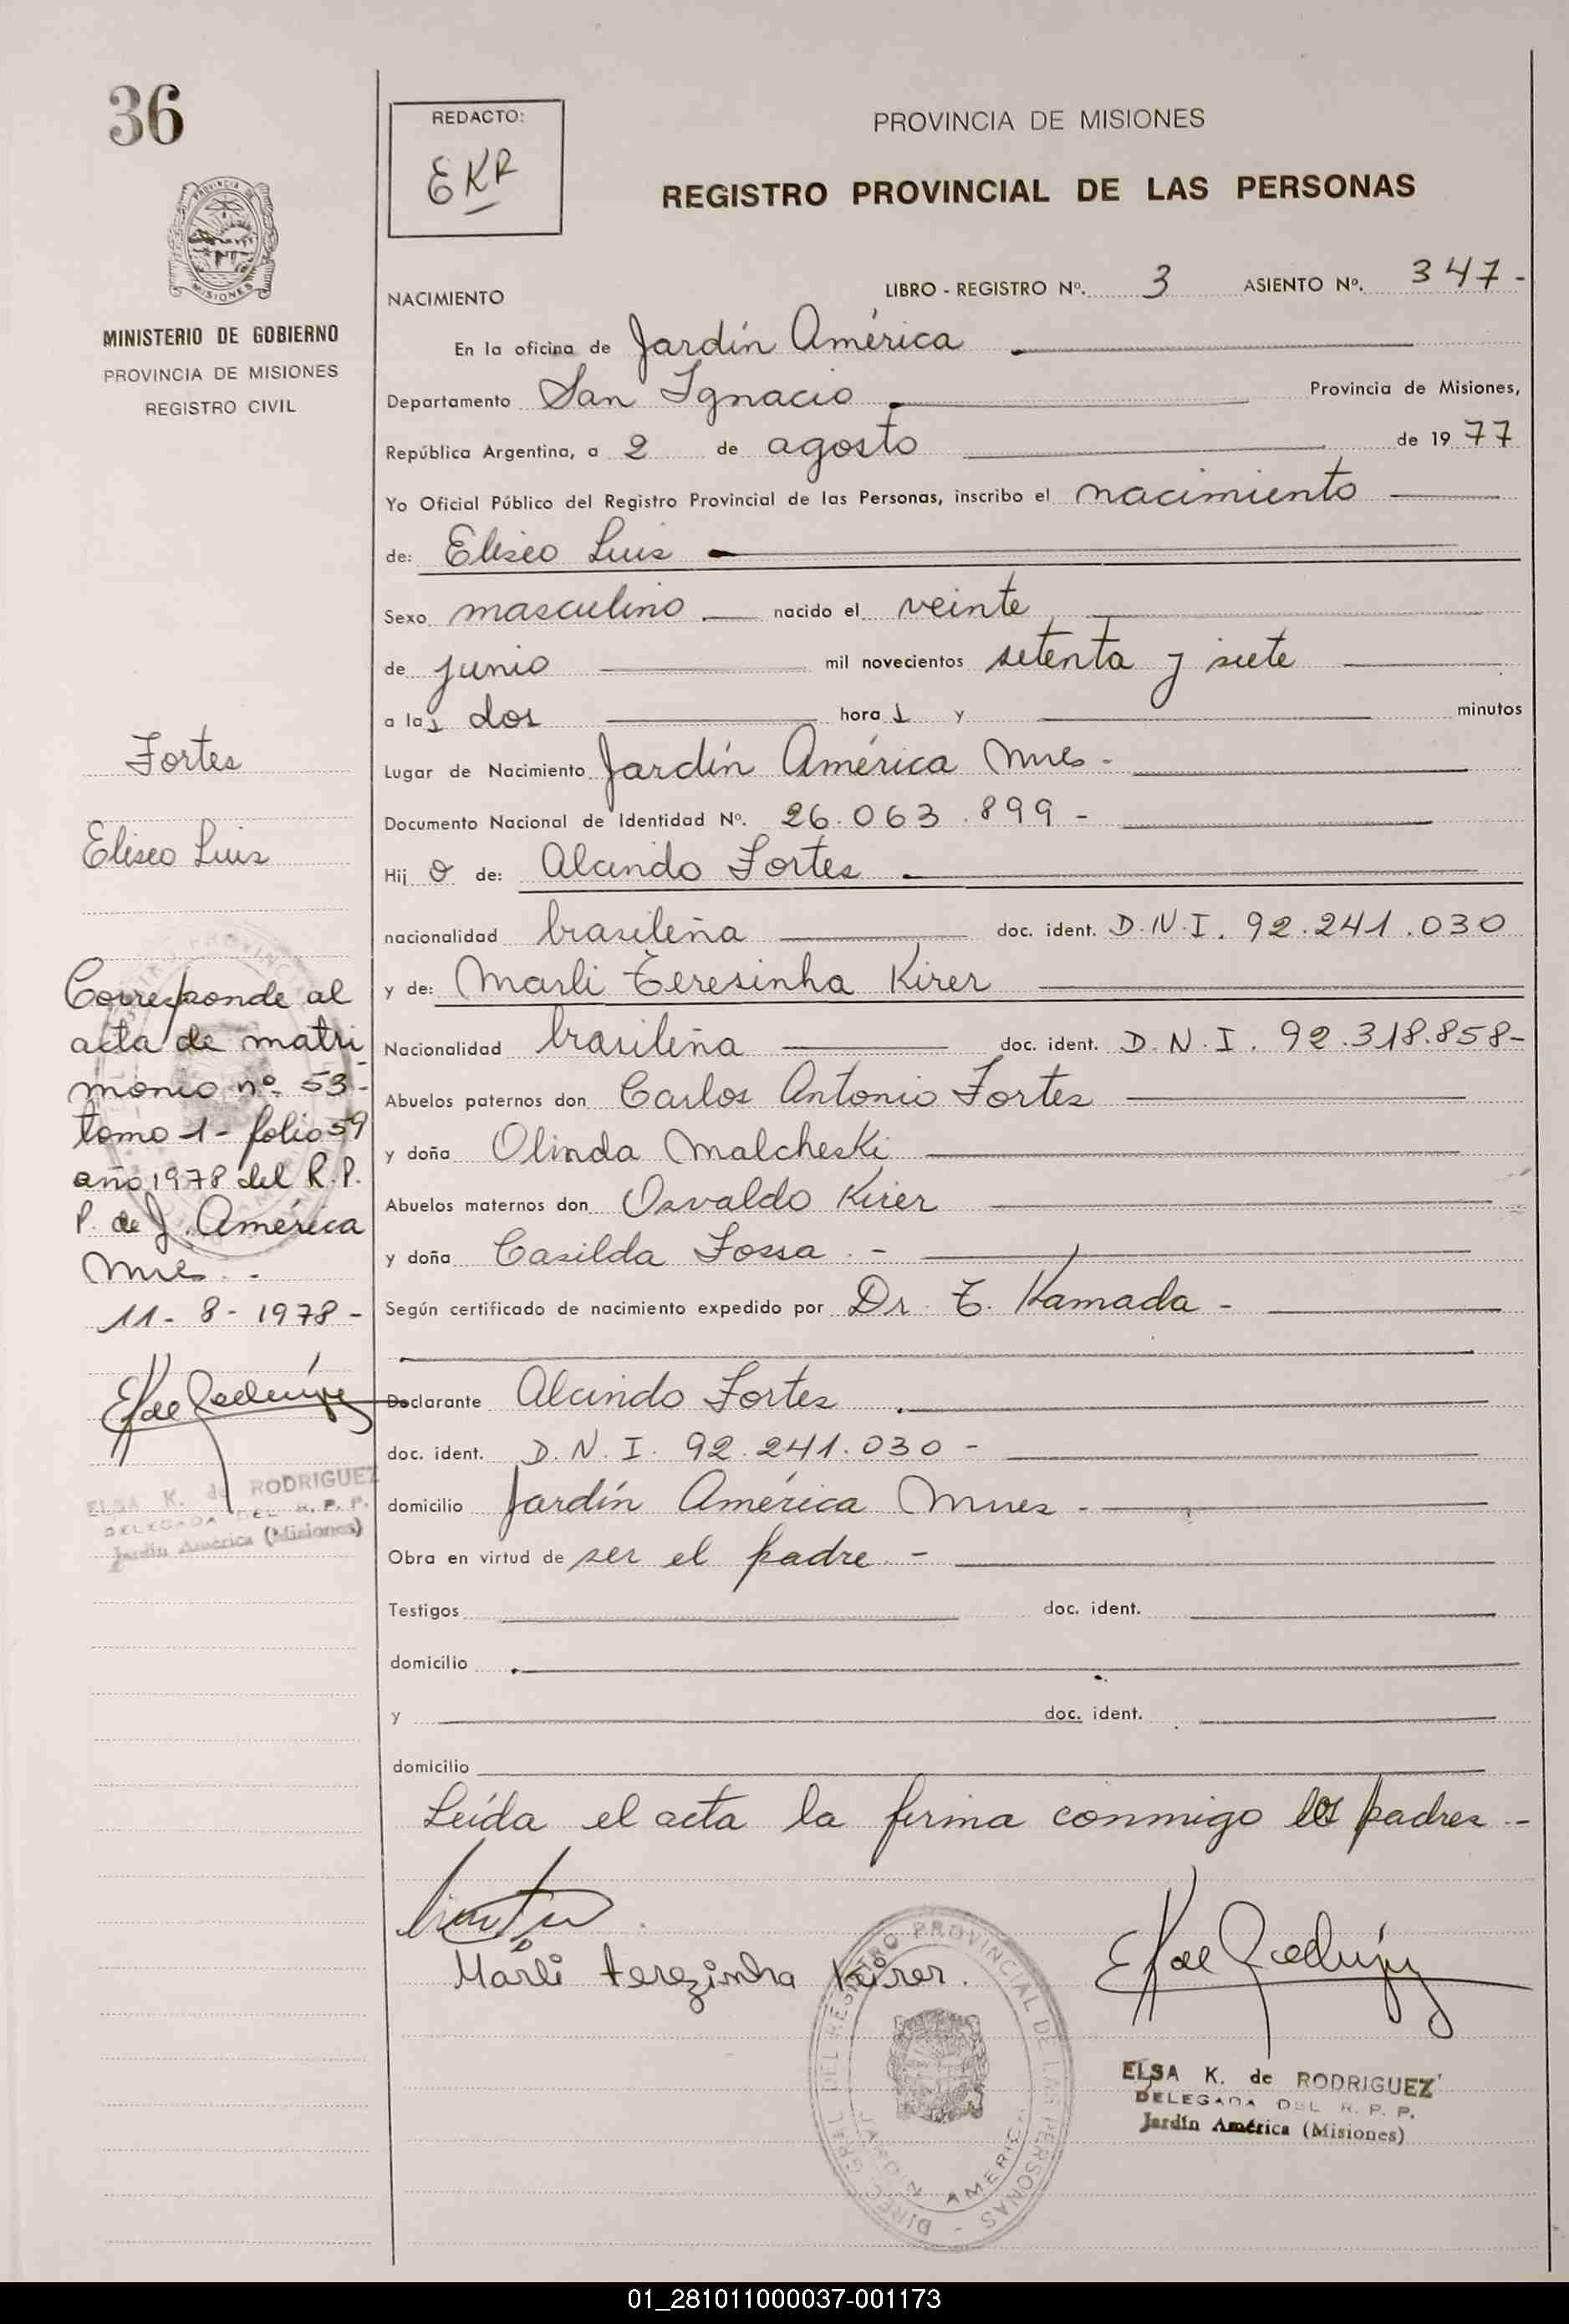 36
REDACTO:
EKR
PROVINCIA DE MISIONES
REGISTRO PROVINCIAL DE LAS PERSONAS
PROVINCIA DE
MISIONES
MINISTERIO DE GOBIERNO
PROVINCIA DE MISIONES
REGISTRO CIVIL
NACIMIENTO
LIBRO - REGISTRO Nº. 3 ASIENTO Nº. 347-
En la oficina de Jardín América
Departamento San Ignacio Provincia de Misiones,
República Argentina, a 2 de agosto de 1977
Yo Oficial Público del Registro Provincial de las Personas, inscribo el nacimiento
de: Eliseo Luis
Sexo masculino nacido el veinte
de junio mil novecientos setenta y siete
a las dos horas y minutos
Lugar de Nacimiento Jardín América Mnes -
Documento Nacional de Identidad Nº. 26.063.899 -
Hijo de: Alcindo Fortes
nacionalidad brasileña doc. ident. D.N.I. 92.241.030
y de: Marli Teresinha Kirer
Nacionalidad brasileña doc. ident. D.N.I. 92.318.858-
Abuelos paternos don Carlos Antonio Fortes
y doña Olinda Malcheski
Abuelos maternos don Osvaldo Kirer
y doña Casilda Fossa . -
Según certificado de nacimiento expedido por Dr. T. Kamada -
Declarante Alcindo Fortes
doc. ident. D.N.I. 92.241.030 -
domicilio Jardín América Mnes -
Obra en virtud de ser el padre -
Testigos doc. ident.
domicilio
y doc. ident.
domicilio
Leída el acta la firma conmigo los padres -
Marli terezinha Kirer.
EK de Rodríguez
ELSA K. de RODRIGUEZ
DELEGADA DEL R. P. P.
Jardín América (Misiones)
DIREC. GRAL. DEL REGISTRO PROVINCIAL DE LAS PERSONAS -
JARDIN AMERICA
Fortes
Eliseo Luis
Corresponde al
acta de matri
monio nº 53-
tomo 1- folio 59
año 1978 del R.P.
P. de J. América
Mnes. -
11- 8- 1978 -
EK de Rodríguez
ELSA K. de RODRIGUEZ
DELEGADA DEL R. P. P.
Jardín América (Misiones)
01_281011000037-001173